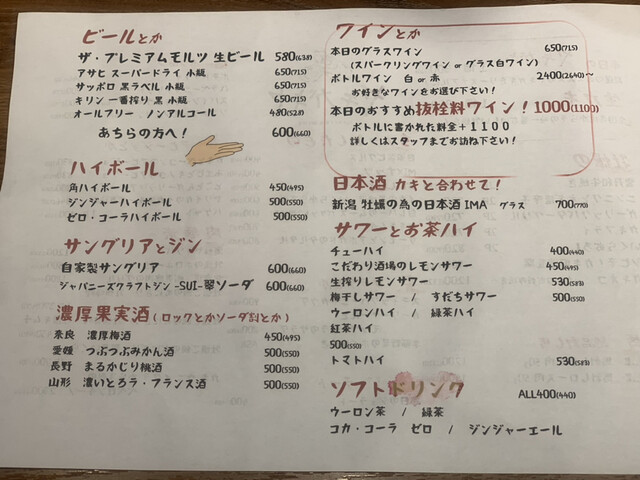 ビールとか
ザ・プレミアムモルツ 生ビール 580(638)
アサヒ スーパードライ 小瓶 650(715)
サッポロ 黒ラベル 小瓶 650(715)
キリン 一番搾り 黒 小瓶 650(715)
オールフリー ノンアルコール 480(528)
あちらの方へ! 600(660)
ハイボール
角ハイボール 450(495)
ジンジャーハイボール 500(550)
ゼロ・コーラハイボール 500(550)
サングリアとジン
自家製サングリア 600(660)
ジャパニーズクラフトジン -SUI-翠ソーダ 600(660)
濃厚果実酒(ロックとかソーダ割とか)
奈良 濃厚梅酒 450(495)
愛媛 つぶつぶみかん酒 500(550)
長野 まるかじり桃酒 500(550)
山形 濃いとろラ・フランス酒 500(550)
ワインとか
本日のグラスワイン 650(715)
(スパークリングワイン or グラス白ワイン)
ボトルワイン 白 or 赤 2400(2640)～
お好きなワインをお選び下さい!
本日のおすすめ抜栓料ワイン!1000(1100)
ボトルに書かれた料金+1100
詳しくはスタッフまでお訪ね下さい!
日本酒 カキと合わせて!
新潟 牡蠣の為の日本酒 IMA グラス 700(770)
サワーとお茶ハイ
チューハイ 400(440)
こだわり酒場のレモンサワー 450(495)
生搾りレモンサワー 530(583)
梅干しサワー / すだちサワー 500(550)
ウーロンハイ / 緑茶ハイ
紅茶ハイ
500(550)
トマトハイ 530(583)
ソフトドリンク ALL400(440)
ウーロン茶 / 緑茶
コカ・コーラ ゼロ / ジンジャーエール